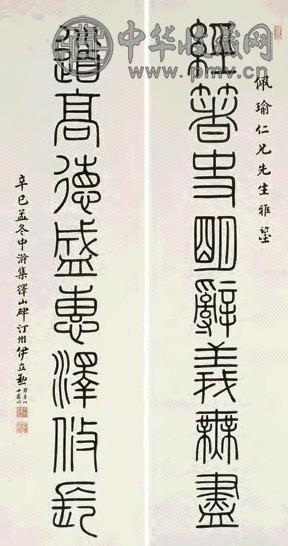 中华收藏网
www.pmv.cn
佩瑜仁兄先生雅鑒
經箸史明辭義無盡
道高德盛惠澤攸長
辛巳孟冬中澣集繹山碑汀州伊立勳